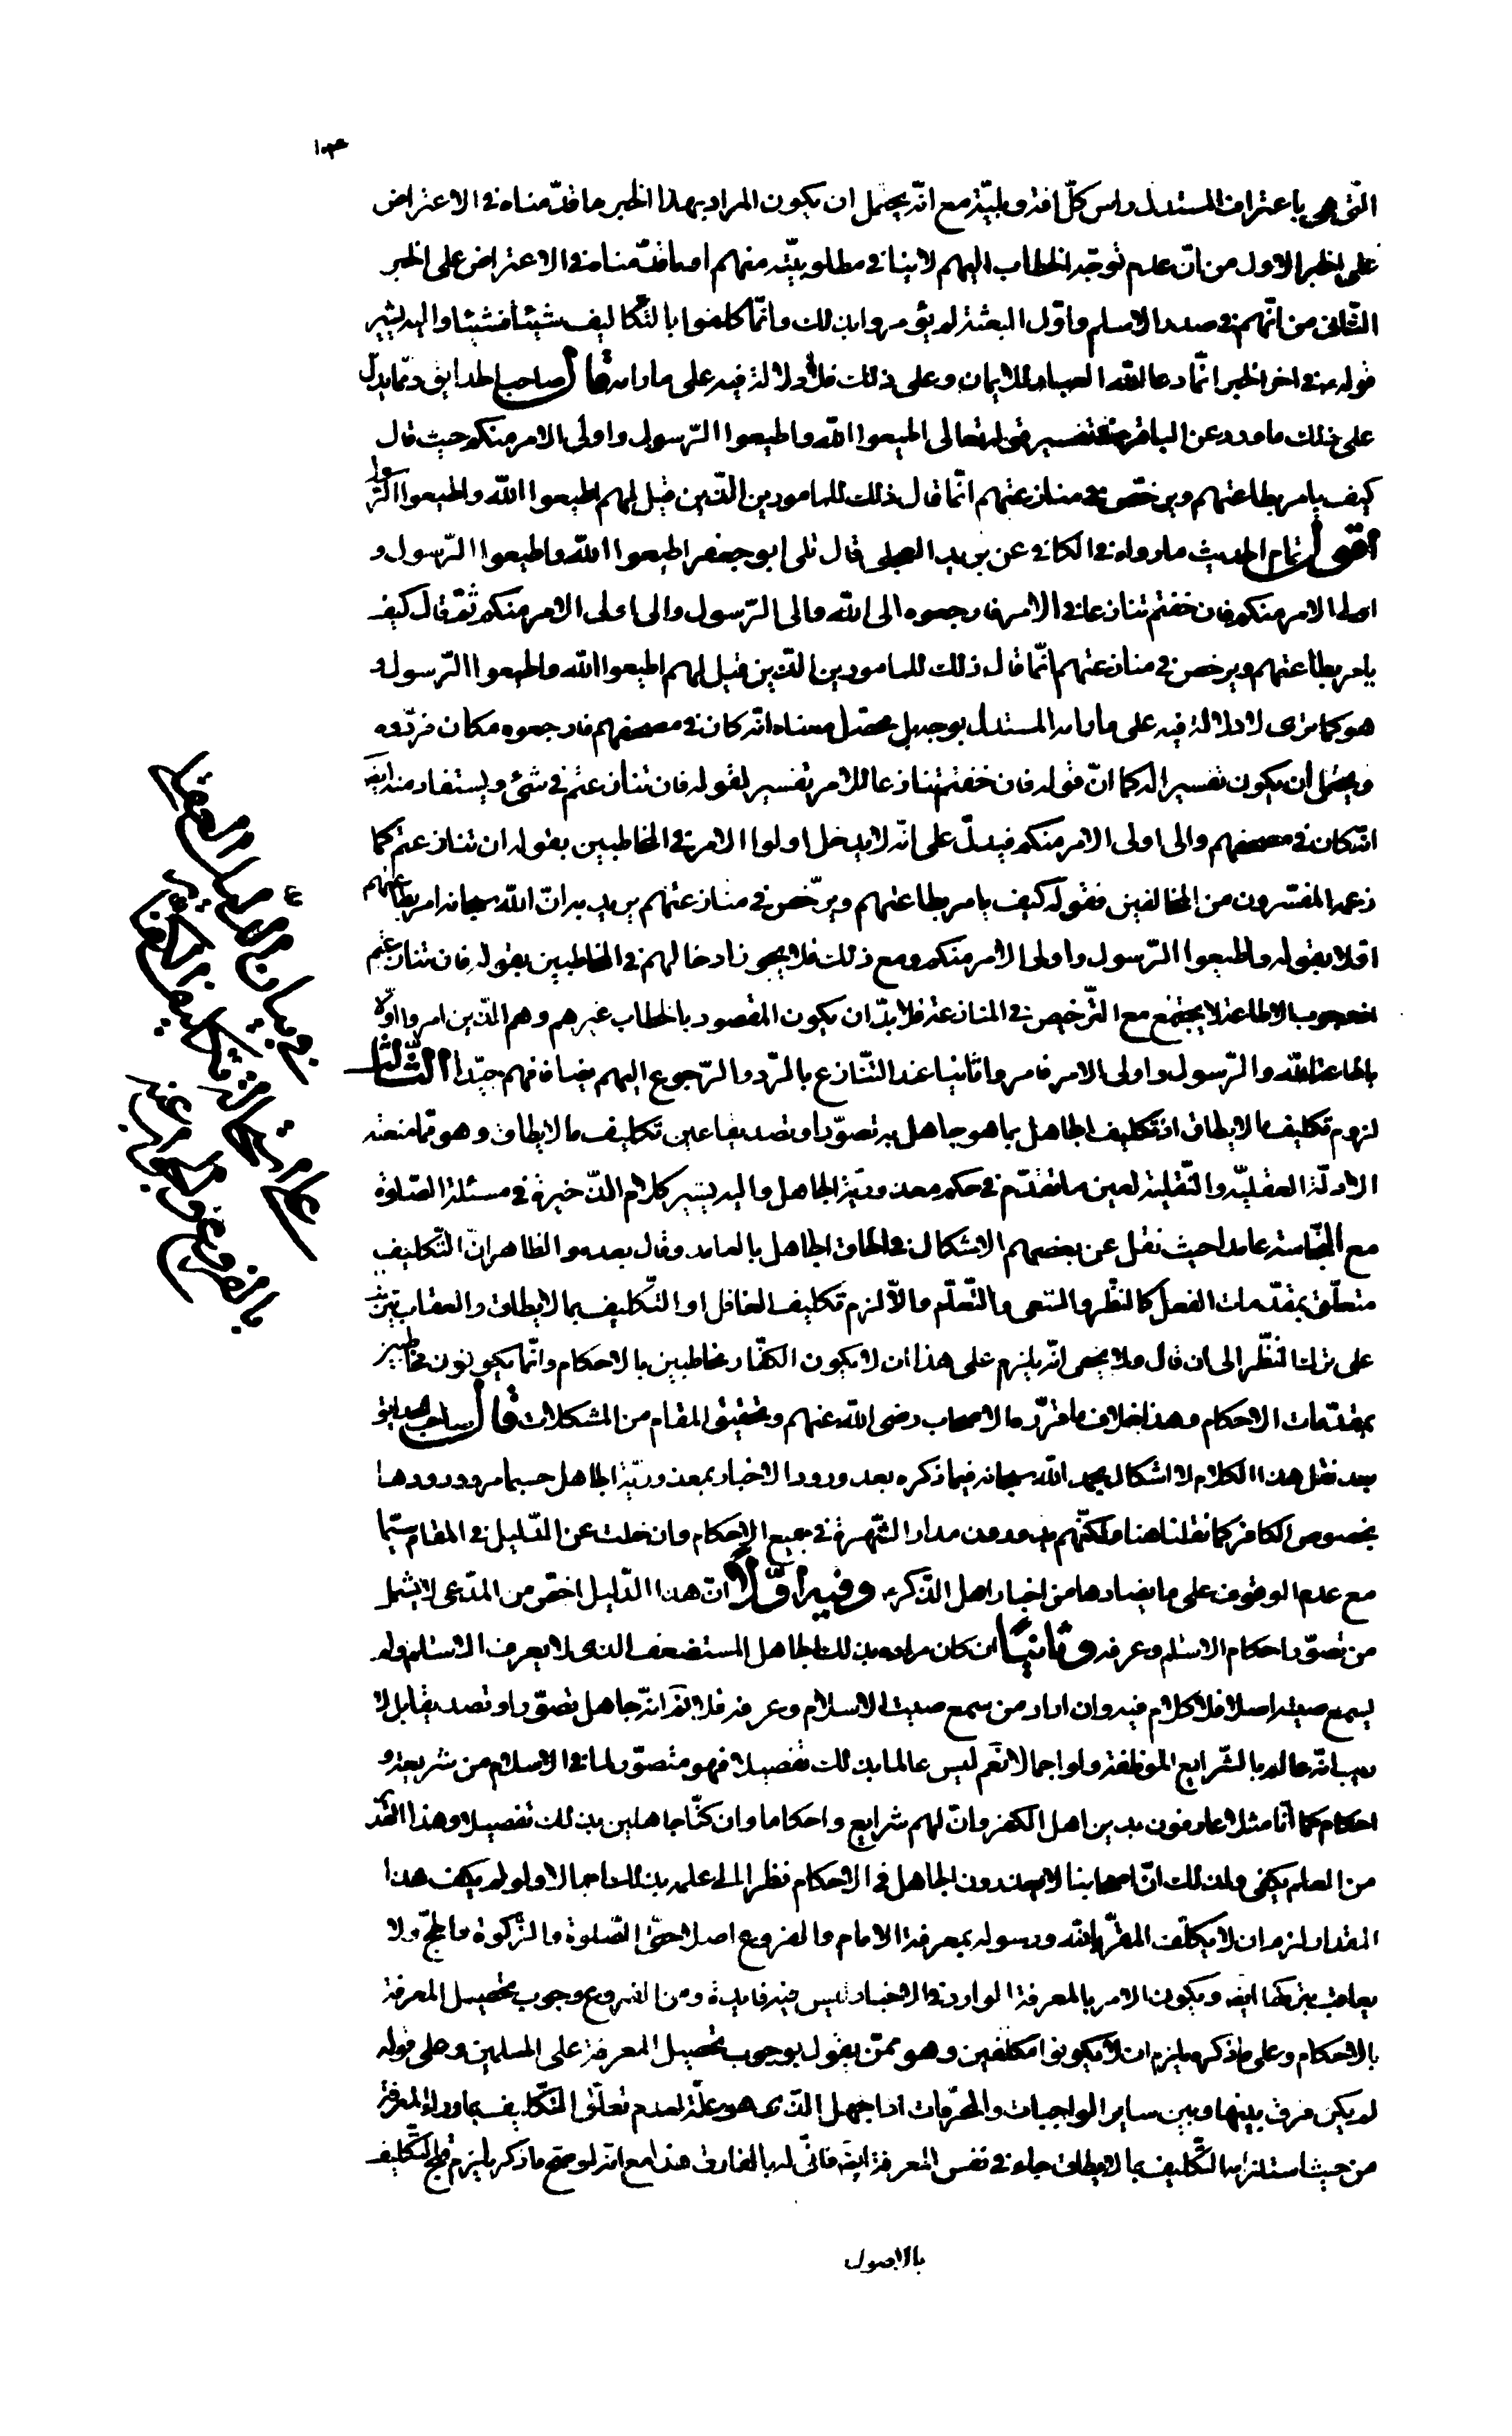 التی هی باعتراف المستدل راس کلّ افة وبلیّة مع انّه یحتمل ان یکون المراد بهذا الخبر ما قدّمناه فی الاعتراض
علی الخبر الاول من انّ عدم توجّه الخطاب الیهم لا ینافی مطلوبیّته منهم او ما قدّمناه فی الاعتراض علی الخبر
الثّانی من انّهم فی صدر الاسلم واوّل البعثة لم یؤمروا بذلك وانّما کلفوا بالتّکالیف شیئا فشیئا والیه یشیر
قوله فی اخر الخبر انّما دعا الله العباد للایمان وعلی ذلك فلا دلالة فیه علی مارامه قال صاحب الحدایق وممّا یدلّ
علی ذلك ما ورد عن الباقر فی تفسیر قوله تعالی اطیعوا الله واطیعوا الرّسول واولی الامر منکم حیث قال
کیف یامر بطاعتهم ویرخّص فی منازعتهم انّما قال ذلك للمامورین الّذین قیل لهم اطیعوا الله واطیعوا الرّسول
اقول تمام الحدیث ما رواه فی الکافی عن برید العجلی قال تلی ابو جعفر اطیعوا الله واطیعوا الرّسول و
اولی الامر منکم فان خفتم تنازعا فی الامر فارجعوه الی الله والی الرّسول والی اولی الامر منکم ثمّ قال کیف
یامر بطاعتهم ویرخص فی منازعتهم انّما قال ذلك للمامورین الّذین قیل لهم اطیعوا الله واطیعوا الرّسول و
هو کما تری لا دلالة فیه علی مارامه المستدل بوجه بل محصّل معناه انّه کان فی مصحفهم فارجعوه مکان فردّوه
ویحتمل ان یکون تفسیرا له کما انّ قوله فان خفتم تنازعا للامر تفسیر لقوله فان تنازعتم فی شئ ویستفاد منه ایضا
انّه کان فی مصحفهم والی اولی الامر منکم فیدلّ علی انّه لا یدخل اولوا الامر فی المخاطبین بقوله ان تنازعتم کما
زعمه المفسّرون من المخالفین فقوله کیف یامر بطاعتهم ویرّخص فی منازعتهم یرید به انّ الله سبحانه امر بطاعتهم
اوّلا بقوله واطیعوا الرّسول واولی الامر منکم ومع ذلك فلا یجوز ادخالهم فی المخاطبین بقوله فان تنازعتم
اذ وجوب الاطاعة لا یجتمع مع التّرخیص فی المنازعة فلا بدّ ان یکون المقصود بالخطاب غیرهم وهم الّذین امروا اوّلا
باطاعة الله والرّسول واولی الامر فامروا ثانیا عند التّنازع بالرّد والرّجوع الیهم فافهم جیّدا الثّالث
لزوم تکلیف ما لا یطاق اذ تکلیف الجاهل بما هو جاهل به تصوّرا وتصدیقا عین تکلیف ما لا یطاق وهو ممّا منعته
الادلّة العقلیّه والنّقلیة لعین ما تقدّم فی حکم معذوریّة الجاهل والیه یشیر کلام الذّخیرة فی مسئلة الصّلوة
مع النّجاسة عامدا حیث نقل عن بعضهم الاشکال فی الحاق الجاهل بالعامد وقال بعده والظاهر انّ التّکلیف
متعلّق بمقدّمات الفعل کالنّظر والسّعی والتّعلّم والاّ لزم تکلیف الغافل او التّکلیف بما لا یطاق والعقاب یترتّب
علی ترك النّظر الی ان قال ولا یخفی انّه یلزم علی هذا ان لا یکون الکفّار مخاطبین بالاحکام وانّما یکونون مخاطبین
بمقدّمات الاحکام وهذا خلاف ما قرّره الاصحاب رضی الله عنهم وتحقیق المقام من المشکلات قال صاحب الحدایق
بعد نقل هذا الکلام لا اشکال بحمد الله سبحانه فیما ذکره بعد ورود الاخبار بمعذوریّة الجاهل حسبما مر وورودها
بخصوص الکافر کما نقلناه هنا ولکنّهم یدورون مدار الشّهرة فی جمیع الاحکام وان خلت عن الدّلیل فی المقام سیّما
مع عدم الوقوف علی ما یضادها من اخبار اهل الذّکر وفیه اوّلاً انّ هذا الدّلیل اخصّ من المدّعی لا یشمل
من تصوّر احکام الاسلم وعرفه وثانیًا ان کان مراده بذلك الجاهل المستضعف الذی لا یعرف الاسلم ولم
یسمع صیته اصلا فلا کلام فیه وان اراد من سمع صیت الاسلام وعرفه فلا نمّ انّه جاهل تصوّرا وتصدیقا بل لا
ریب انّه عالم بالشّرایع الموظفة ولو اجمالا نعم لیس عالما بذلك تفصیلا فهو متصوّر لما فی الاسلام من شریعة و
احکام کما انّا مثلا عارفون بدین اهل الکفر وانّ لهم شرایع واحکاما وان کنّا جاهلین بذلك تفصیلا وهذا القدر
من العلم یکفی ولذلك انّ اصحابنا لا یعذرون الجاهل فی الاحکام نظرا الی علمه بذلك اجمالا ولو لم یکف هذا
المقدار لزم ان لا یکلّف المقرّ بالله ورسوله بمعرفة الامام والفروع اصلا حتّی الصّلوة والزّکوة والحجّ ولا
یعاقب بترکها ایضا ویکون الامر بالمعرفة الوارد فی الاخبار لیس فیه فایدة ومن الفروع وجوب تحصیل المعرفة
بالاحکام وعلی ما ذکره یلزم ان لا یکونوا مکلّفین وهو ممّن یقول بوجوب تحصیل المعرفة علی المسلمین وعلی قوله
لم یکن فرق بینها وبین سایر الواجبات والمحرّمات اذ الجهل الّذی هو علّة لعدم تعلّق التّکالیف بما وراء المعرفة
من حیث استلزامه التّکلیف بما لا یطاق جار فی نفس المعرفة ایضا فانّی له بالفارق هذا مع انّه لو صحّ ما ذکر یلزم قبح التّکلیف
بالاصول